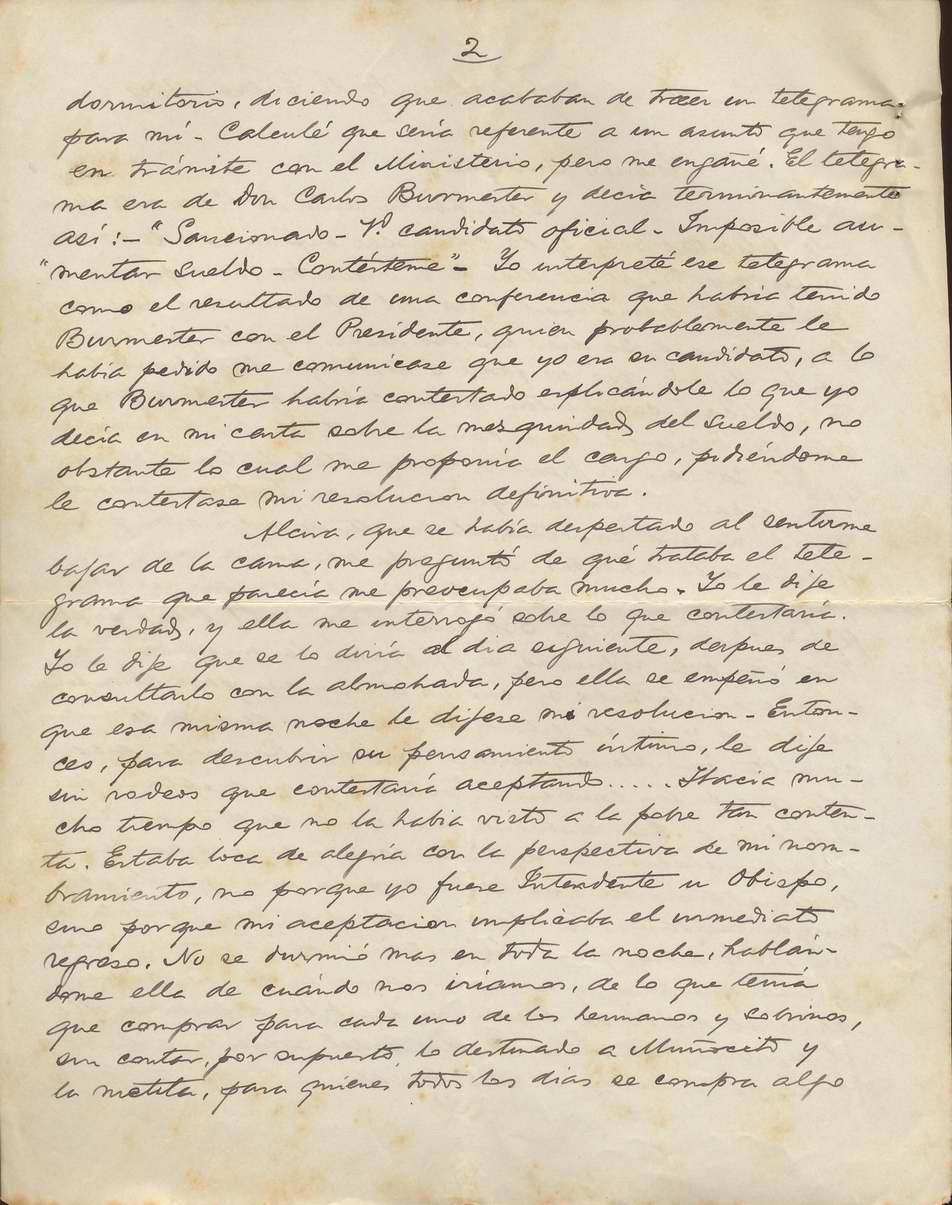 2
dormitorio, diciendo que acababan de traer un telegrama
para mí - Calculé que sería referente a un asunto que tengo
en trámite con el Ministerio, pero me engañé. El telegra-
ma era de Don Carlos Burmester y decía terminantemente
así:- "Sancionado - Vd. candidato oficial - Imposible au-
"mentar sueldo - Contésteme" - Yo interpreté ese telegrama
como el resultado de una conferencia que habría tenido
Burmester con el Presidente, quien probablemente le
había pedido me comunicase que yo era su candidato, a lo
que Burmester habría contestado esplicándole lo que yo
decía en mi carta sobre la mezquindad del sueldo, no
obstante lo cual me proponía el cargo, pidiéndome
le contestase mi resolucion definitiva.
Alcira, que se había despertado al sentirme
bajar de la cama, me preguntó de qué trataba el tele-
grama que parecía me preocupaba mucho. Yo le dije
la verdad, y ella me interrogó sobre lo que contestaría.
Yo le dije que se lo diría al dia siguiente, despues de
consultarlo con la almohada, pero ella se empeñó en
que esa misma noche le dijese mi resolucion - Enton-
ces, para descubrir su pensamiento íntimo, le dije
sin rodeos que contestaría aceptando..... Hacia mu-
cho tiempo que no la habia visto a la pobre tan conten-
ta. Estaba loca de alegría con la perspectiva de mi nom-
bramiento, no porque yo fuese Intendente u Obispo,
sino porque mi aceptacion implicaba el inmediato
regreso. No se durmió mas en toda la noche, hablán-
dome ella de cuándo nos iríamos, de lo que tenía
que comprar para cada uno de los hermanos y sobrinos,
sin contar, por supuesto, lo destinado a Muñocito y
la nietita, para quienes todos los dias se compra algo